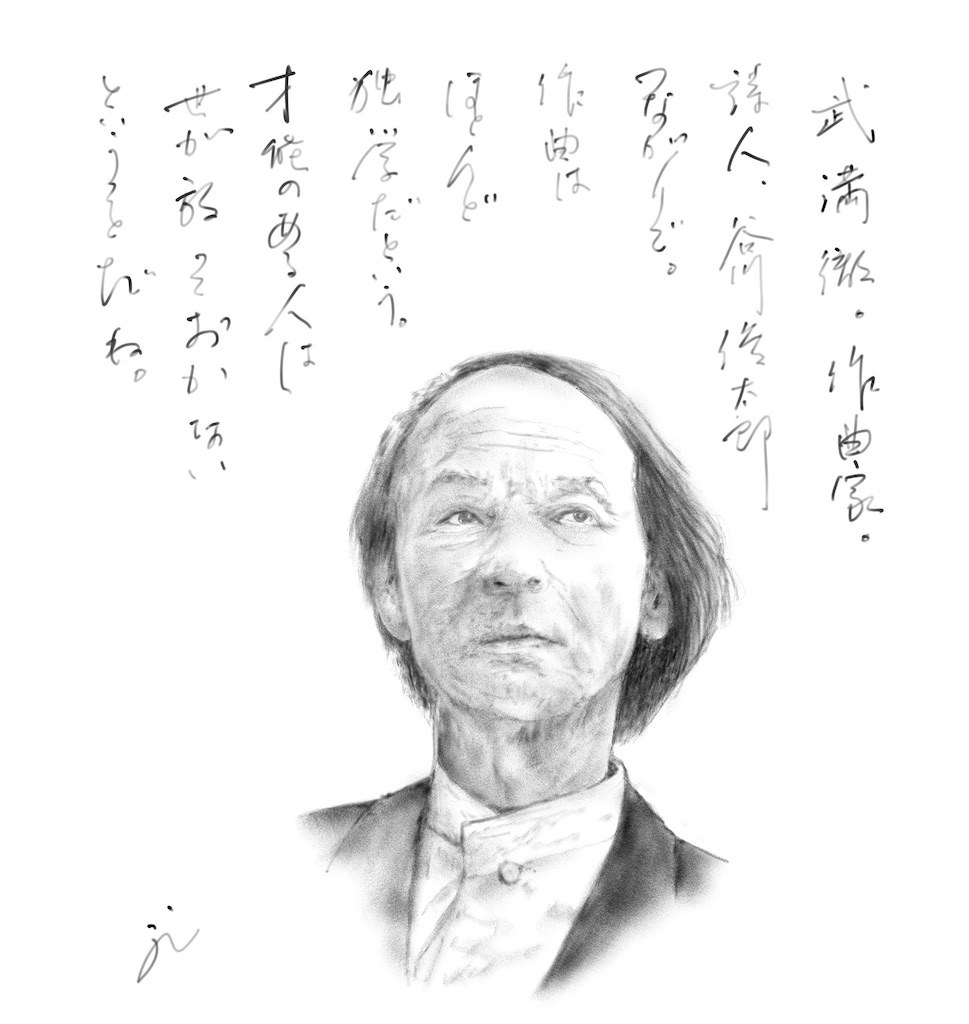 武満徹。作曲家。
詩人、谷川俊太郎
つながりで。
作曲は
ほとんど
独学だという。
才能のある人は
世が放っておかない
ということだね。